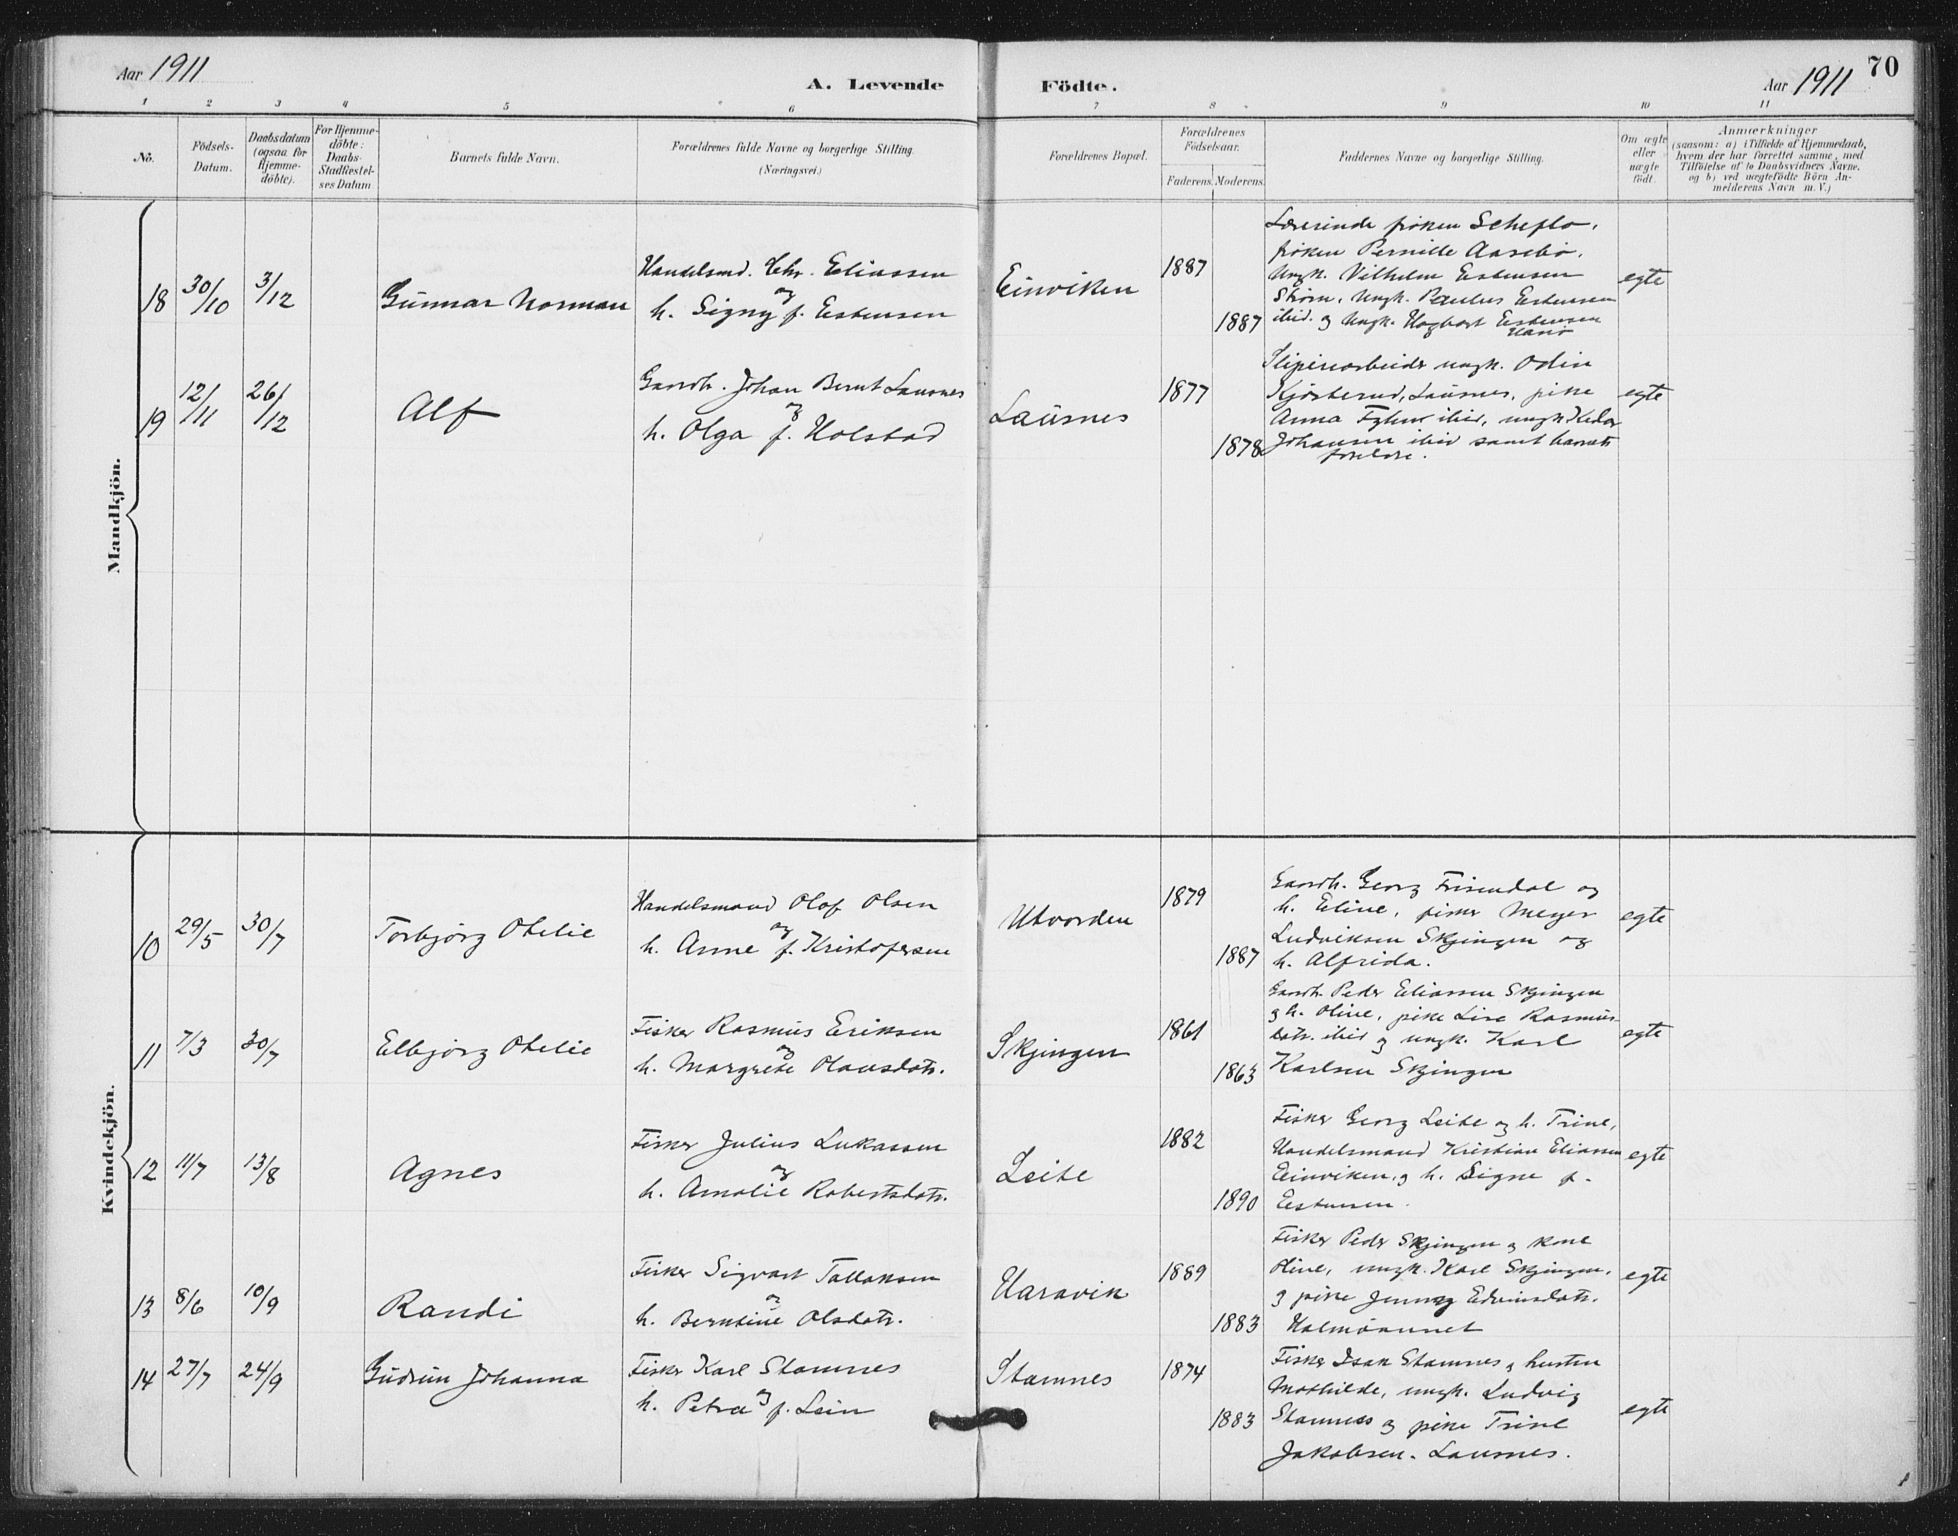 Aar 1911
A. Levende
Födte.
Aar 1911
70
1 2 3 4 5 6 7 8 9 10 11
No.
Födsels-
Datum.
Daabsdatum
(ogsaa for
Hjemme-
döbte).
For Hjemme-
döbte:
Daabs-
Stadfæstel-
ses Datum
Barnets fulde Navn.
Forældrenes fulde Navne og borgerlige Stilling.
(Næringsvei.)
Forældrenes Bopæl.
Forældrenes
Födselsaar.
Faderens. Moderens.
Faddernes Navne og borgerlige Stilling.
Om ægte
eller
uægte
födt.
Anmærkninger
(saasom: a) i Tilfælde af Hjemmedaab,
hvem der har forrettet samme, med
Tilföielse af to Daabsvidners Navne.
og b) ved uægtefödte Börn An-
melderens Navn m. V.)
Mandkjön.
18
30/10
3/12
Gunnar Norman
Handelsmd. Chr. Eliassen
og
h. Signy f. Estensen
Einviken
1887
1887
Lærerinde frøken Scheflo,
frøken Pernille Aarsbø.
Ungk. Vilhelm Estensen
Strøm, Ungk. Paulus Estensen
ibid. og Ungk. Hagbart Estensen
egte
19
12/11
26/12
Alf
Gaardb. Johan Bernt Lausnes
og
h. Olga f. Holstad
Lausnes
1877
1878
Sliperiarbeider ungk. Odin
Lausnes, pike
Anna ibid, ungk Peder
Johansen ibid samt barnets
foreldre.
egte
Kvindekjön.
10
29/5
30/7
Torbjörg Otelie
Handelsmand Olof Olsen
og
h. Anne f. Kristofersen
Utvorden
1879
1887
Gaardb. Georg Frisendal og
h. Eline, fisker Meyer
Ludviksen Skjingen og
h. Alfrida.
egte
11
7/3
30/7
Elbjörg Otelie
Fisker Rasmus Eriksen
og
h. Margrete Olausdatr.
Skjingen
1861
1863
Gaardb. Peder Eliassen Skjingen
og h. Oline, pike Lise Rasmus-
datr. ibid og ungk. Karl
Karlsen Skjingen
egte
12
11/7
13/8
Agnes
Fisker Julius Lukassen
og
h. Amalie Robertsdatr.
Leite
1882
1890
Fisker Georg Leite og h. Trine,
Handelsmand Kristian Eliassen
Einviken, og h. Signe f.
Estensen.
egte
13
8/6
10/9
Randi
Fisker Sigvart Tollaksen
og
h. Berntine Olsdatr.
Haravik
1889
1883
Fisker Peder Skjingen og kone
Oline, ungk. Karl Skjingen,
og pike Jenny Edvinsdatr.
Holmöannet
egte
14
27/7
24/9
Gudrun Johanna
Fisker Karl Stamnes
og
h. Petra f. Lein
Stamnes
1874
1883
Fisker Isak Stamnes og hustru
Mathilde, ungk. Ludvig
Stamnes og pike Trine
Jakobsen. Lausnes.
egte